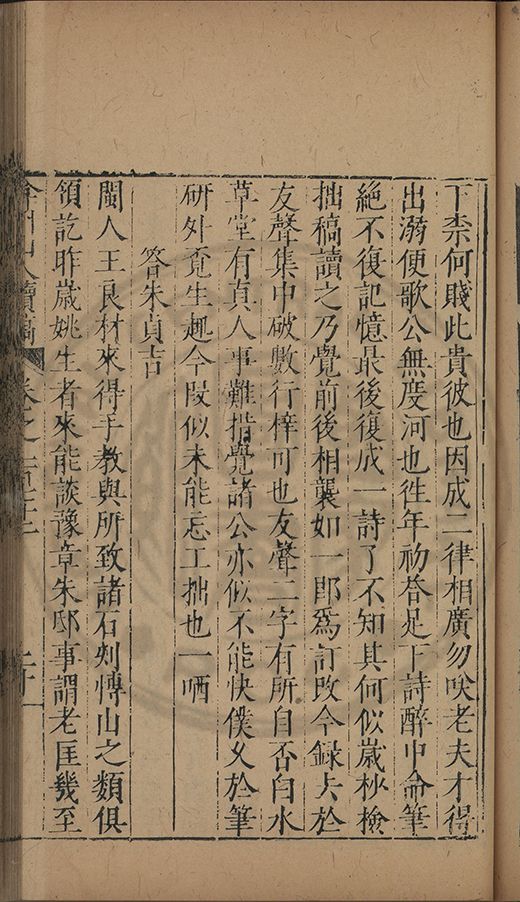 下柰何賤此貴彼也因成二律相廣勿唉老夫才得
出溺便歌公無度河也徃年初答足下詩醉中命筆
絶不復記憶最後復成一詩了不知其何似歳杪檢
拙稿讀之乃覺前後相襲如一卽爲訂改今録去於
友聲集中破數行梓可也友聲二字有所自否白水
草堂有真人事難措覺諸公亦似不能快僕又於筆
研外覔生趣今段似未能忘工拙也一哂
答朱貞吉
閩人王良材來得手教與所致諸石刻博山之類俱
領訖昨歳姚生者來能談豫章朱邸事謂老匡幾至
弇州山人續稿 卷之一百